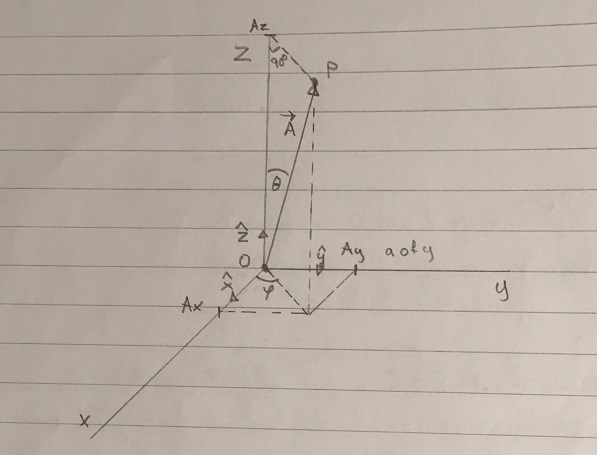 Az
Z 90°
P
A⃗
θ
ẑ
O ŷ Ay a of y
x̂ φ y
Ax
X